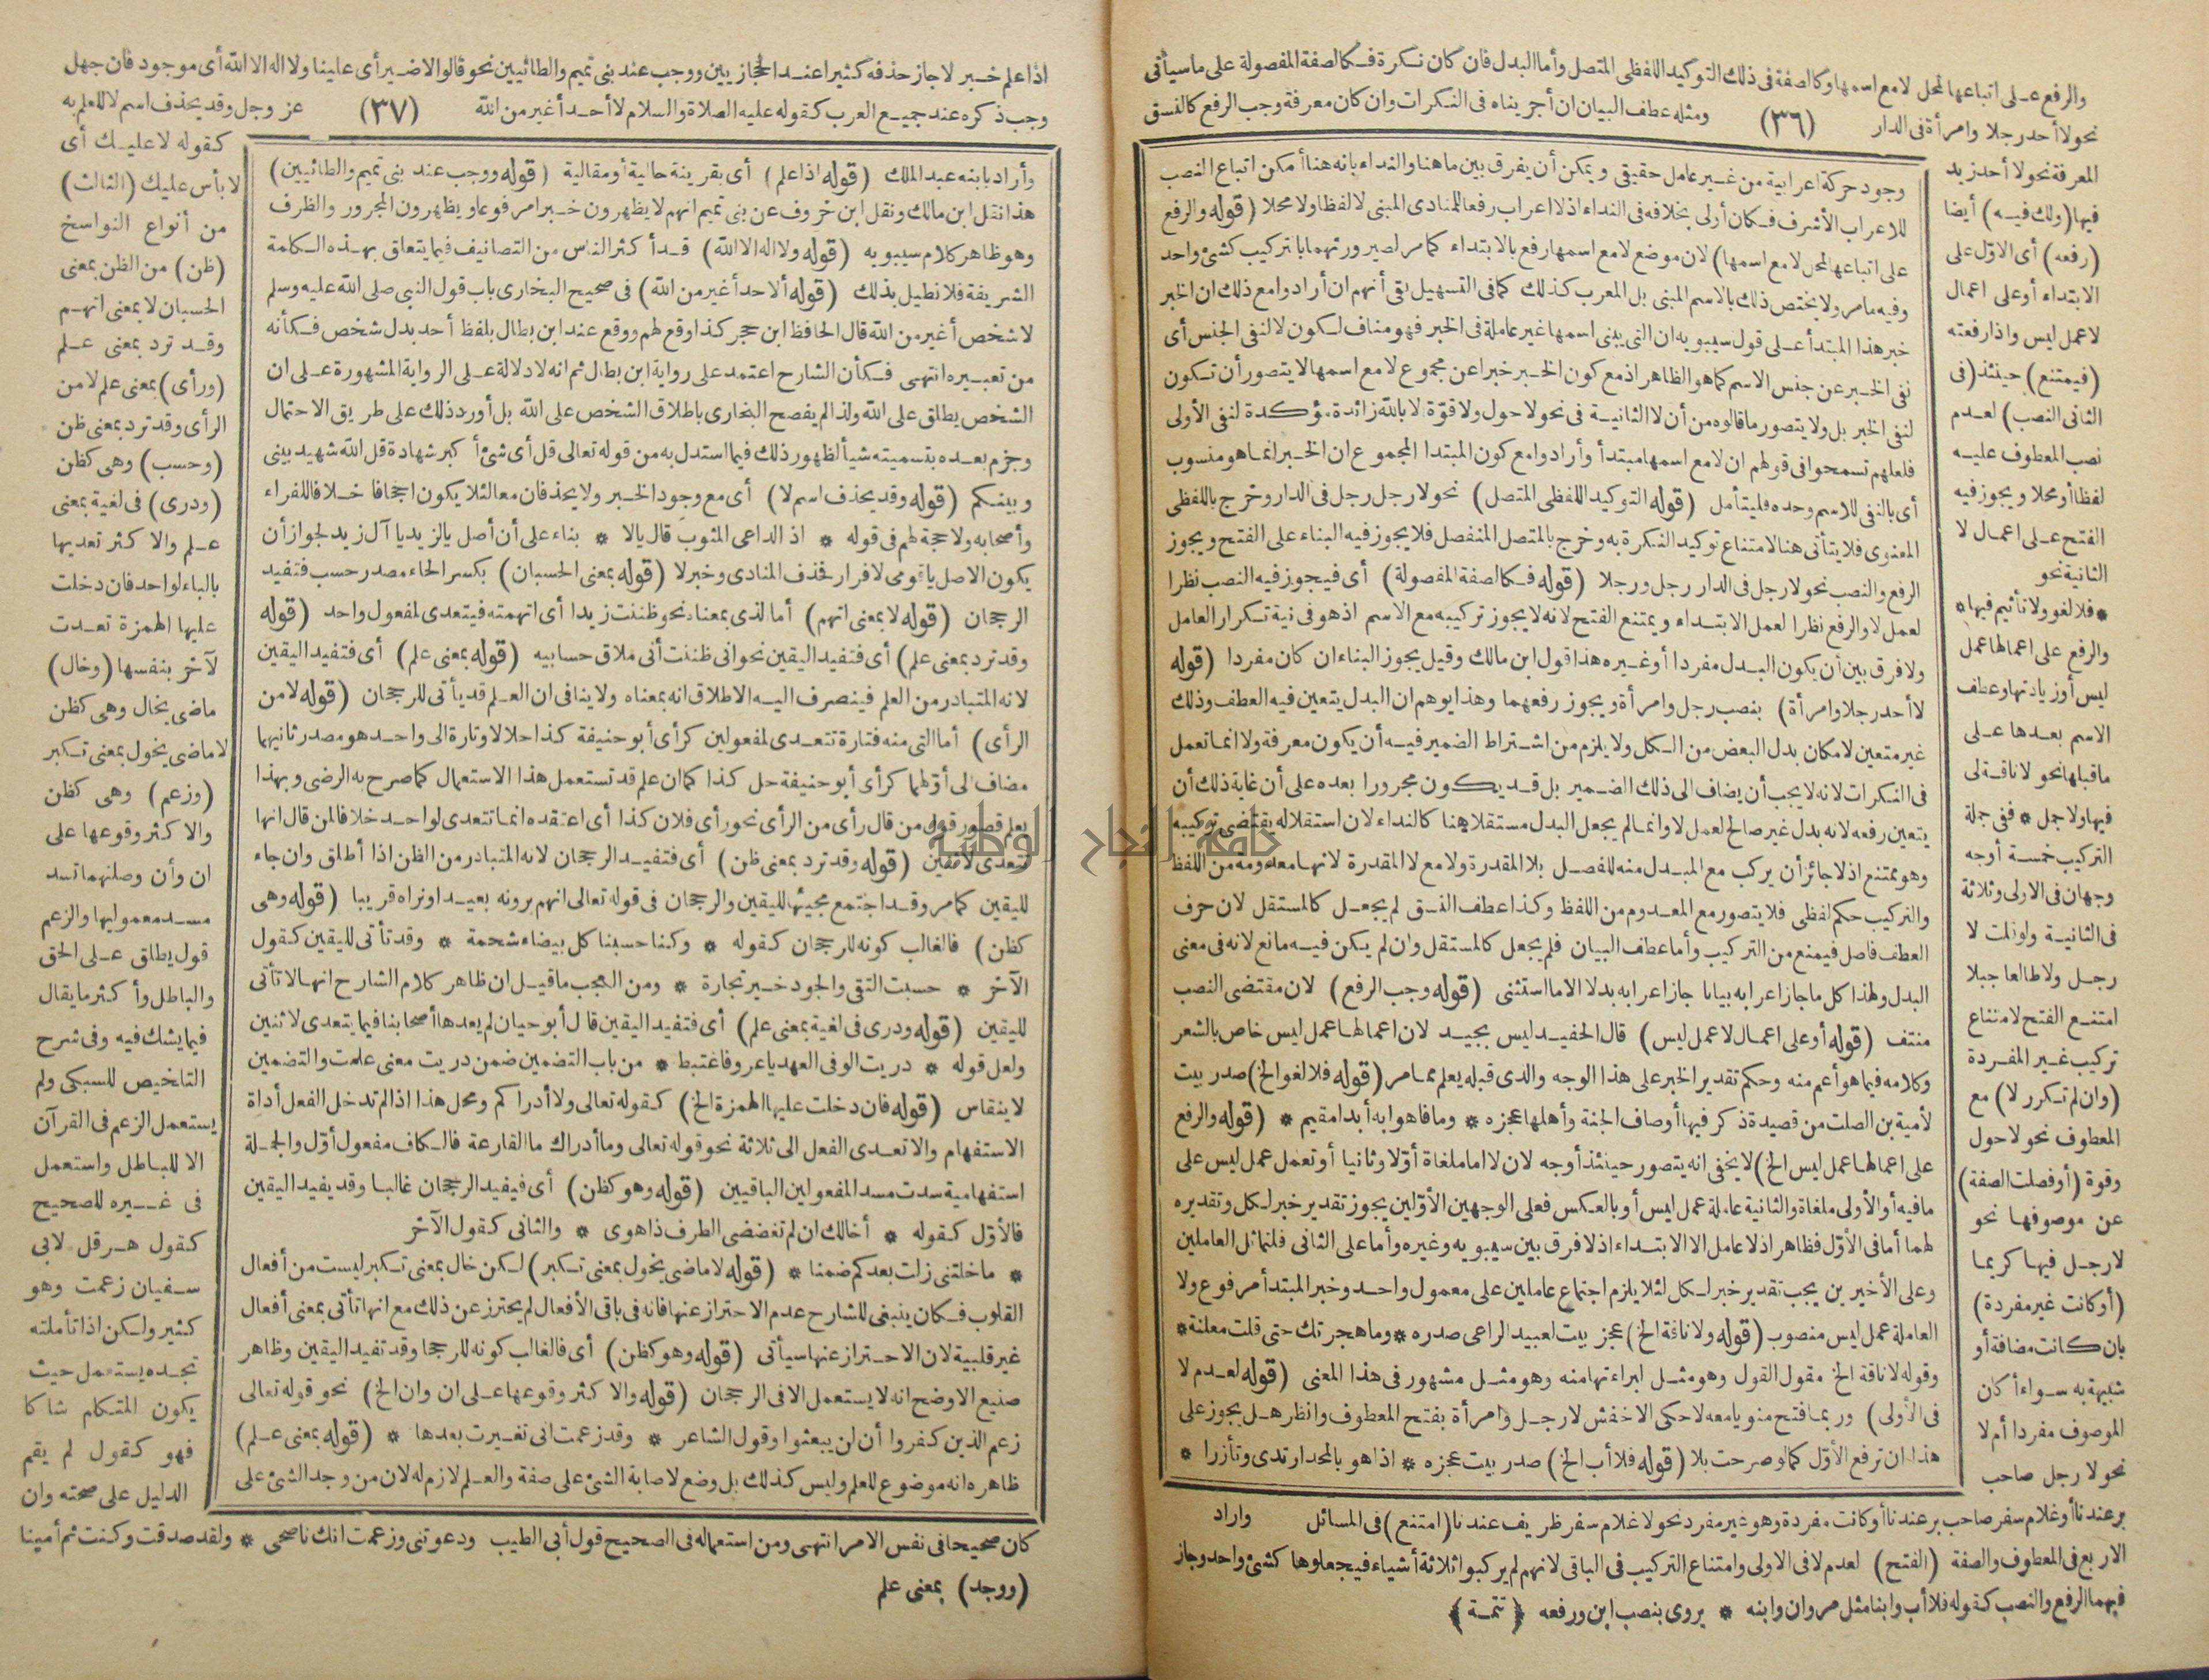 والرفع على اتباعها لمحل لا مع اسمها وكالصفة فى ذلك التوكيد اللفظى المتصل وأما البدل فان كان نكرة فكالصفة المفصولة على ما سيأتى
نحو لا أحد رجلا وامرأة فى الدار (٣٦) ومثله عطف البيان ان أجريناه فى النكرات وان كان معرفة وجب الرفع كالنسق
المعرفة نحو لا أحد زيد
فيها (ولك فيه) أيضا
(رفعه) أى الاول على
الابتداء أو على اعمال
لا عمل ليس واذا رفعته
(فيمتنع) حينئذ (فى
الثانى النصب) لعدم
نصب المعطوف عليه
لفظا أو محلا ويجوز فيه
الفتح على اعمال لا
الثانية نحو
* فلا لغو ولا تأثيم فيها *
والرفع على اعمالها عمل
ليس أو زيادتها وعطف
الاسم بعدها على
ما قبلها نحو لا ناقة لى
فيها ولا جمل * ففى جملة
التركيب خمسة أوجه
وجهان فى الاولى وثلاثة
فى الثانية ولو قلت لا
رجل ولا طالعا جبلا
امتنع الفتح لامتناع
تركيب غير المفردة
(وان لم تكرر لا) مع
المعطوف نحو لا حول
وقوة (أو فصلت الصفة)
عن موصوفها نحو
لا رجل فيها كريما
(أو كانت غير مفردة)
بان كانت مضافة أو
شبيهة به سواء أكان
الموصوف مفردا أم لا
نحو لا رجل صاحب
وجود حركة اعرابية من غير عامل حقيقى ويمكن أن يفرق بين ما هنا والنداء بانه هنا أمكن اتباع النصب
للاعراب الأشرف فكان أولى بخلافه فى النداء اذ لا اعراب رفعا للمنادى المبنى لا لفظا ولا محلا (قوله والرفع
على اتباعها لمحل لا مع اسمها) لان موضع لا مع اسمها رفع بالابتداء كما مر لصيرورتهما بالتركيب كشئ واحد
وفيه ما مر ولا يختص ذلك بالاسم المبنى بل المعرب كذلك كما فى التسهيل بقى أنهم ان أرادوا مع ذلك ان الخبر
خبر هذا المبتدأ على قول سيبويه ان التى يبنى اسمها غير عاملة فى الخبر فهو مناف لكون لا لنفى الجنس أى
نفى الخبر عن جنس الاسم كما هو الظاهر اذ مع كون الخبر خبرا عن مجموع لا مع اسمها لا يتصور أن تكون
لنفى الخبر بل ولا يتصور ما قالوه من أن لا الثانية فى نحو لا حول ولا قوة لا بالله زائدة مؤكدة لنفى الأولى
فلعلهم تسمحوا فى قولهم ان لا مع اسمها مبتدأ وأرادوا مع كون المبتدا المجموع ان الخبر انما هو منسوب
أى بالنفى للاسم وحده فليتأمل (قوله التوكيد اللفظى المتصل) نحو لا رجل رجل فى الدار وخرج باللفظى
المعنوى فلا يتأتى هنا لامتناع توكيد النكرة به وخرج بالمتصل المنفصل فلا يجوز فيه البناء على الفتح ويجوز
الرفع والنصب نحو لا رجل فى الدار رجل ورجلا (قوله فكالصفة المفصولة) أى فيجوز فيه النصب نظرا
لعمل لا والرفع نظرا لعمل الابتداء ويمتنع الفتح لانه لا يجوز تركيبه مع الاسم اذ هو فى نية تكرار العامل
ولا فرق بين أن يكون البدل مفردا أو غيره هذا قول ابن مالك وقيل يجوز البناء ان كان مفردا (قوله
لا أحد رجلا وامرأة) بنصب رجل وامرأة ويجوز رفعهما وهذا يوهم ان البدل يتعين فيه العطف وذلك
غير متعين لامكان بدل البعض من الكل ولا يلزم من اشتراط الضمير فيه أن يكون معرفة ولا انما تعمل
فى النكرات لانه لا يجب أن يضاف الى ذلك الضمير بل قد يكون مجرورا بعده على أن غاية ذلك أن
يتعين رفعه لانه بدل غير صالح لعمل لا وانما لم يجعل البدل مستقلا هنا كالنداء لان استقلاله يقتضى تركيبه
وهو ممتنع اذ لا جائز أن يركب مع المبدل منه للفصل بلا المقدرة ولا مع لا المقدرة لانها معدومة من اللفظ
والتركيب حكم لفظى فلا يتصور مع المعدوم من اللفظ وكذا عطف النسق لم يجعل كالمستقل لان حرف
العطف فاصل فيمنع من التركيب وأما عطف البيان فلم يجعل كالمستقل وان لم يكن فيه مانع لانه فى معنى
البدل ولهذا كل ما جاز اعرابه بيانا جاز اعرابه بدلا الا ما استثنى (قوله وجب الرفع) لان مقتضى النصب
منتف (قوله أو على اعمال لا عمل ليس) قال الحفيد ليس بجيد لان اعمالها عمل ليس خاص بالشعر
وكلامه فيما هو أعم منه وحكم تقدير الخبر على هذا الوجه والذى قبله يعلم مما مر (قوله فلا لغو الخ) صدر بيت
لأمية بن الصلت من قصيدة ذكر فيها أوصاف الجنة وأهلها عجزه * وما فاهوا به أبدا مقيم * (قوله والرفع
على اعمالها عمل ليس الخ) لا يخفى انه يتصور حينئذ أوجه لان لا اما ملغاة أولا وثانيا أو تعمل عمل ليس على
ما فيه أو الأولى ملغاة والثانية عاملة عمل ليس أو بالعكس فعلى الوجهين الأولين يجوز تقدير خبر لكل وتقديره
لهما أما فى الأول فظاهر اذ لا عامل الا الابتداء اذ لا فرق بين سيبويه وغيره وأما على الثانى فلتماثل العاملين
وعلى الأخيرين يجب تقدير خبر لكل لئلا يلزم اجتماع عاملين على معمول واحد وخبر المبتدأ مرفوع ولا
العاملة عمل ليس منصوب (قوله ولا ناقة الخ) عجز بيت لعبيد الراعى صدره * وما هجرتك حتى قلت معلنة *
وقوله لا ناقة الخ مقول القول وهو مثل لبراءتها منه وهو مثل مشهور فى هذا المعنى (قوله لعدم لا
فى الأولى) وربما فتح منويا معه لا حكى الاخفش لا رجل وامرأة بفتح المعطوف وانظر هل يجوز على
هذا ان ترفع الأول كما لو صرحت بلا (قوله فلا أب الخ) صدر بيت عجزه * اذا هو بالمجد ارتدى وتأزرا *
بر عندنا أو غلام سفر صاحب بر عندنا أو كانت مفردة وهو غير مفرد نحو لا غلام سفر ظريف عندنا (امتنع) فى المسائل واراد
الاربع فى المعطوف والصفة (الفتح) لعدم لا فى الاولى وامتناع التركيب فى الباقى لانهم لم يركبوا ثلاثة أشياء فيجعلوها كشئ واحد وجاز
فيهما الرفع والنصب كقوله فلا أب وابنا مثل مروان وابنه * يروى بنصب ابن ورفعه ﴿تتمة﴾
اذا علم خبر لا جاز حذفه كثيرا عند الحجازيين ووجب عند بنى تميم والطائيين نحو قالوا لا ضير أى علينا ولا اله الا الله أى موجود فان جهل
وجب ذكره عند جميع العرب كقوله عليه الصلاة والسلام لا أحد أغير من الله (٣٧) عز وجل وقد يحذف اسم لا للعلم به
كقوله لا عليك أى
لا بأس عليك (الثالث)
من أنواع النواسخ
(ظن) من الظن بمعنى
الحسبان لا بمعنى اتهم
وقد ترد بمعنى علم
(ورأى) بمعنى علم لا من
الرأى وقد ترد بمعنى ظن
(وحسب) وهى كظن
(ودرى) فى لغية بمعنى
علم والاكثر تعديها
بالباء لواحد فان دخلت
عليها الهمزة تعدت
لآخر بنفسها (وخال)
ماضى يخال وهى كظن
لا ماضى يخول بمعنى تكبر
(وزعم) وهى كظن
والاكثر وقوعها على
ان وأن وصلتهما تسد
مسد معموليها والزعم
قول يطلق على الحق
والباطل وأكثر ما يقال
فيما يشك فيه وفى شرح
التلخيص للسبكى ولم
يستعمل الزعم فى القرآن
الا للباطل واستعمل
فى غيره للصحيح
كقول هرقل لابى
سفيان زعمت وهو
كثير ولكن اذا تأملته
تجده يستعمل حيث
يكون المتكلم شاكا
فهو كقول لم يقم
الدليل على صحته وان
وأراد بابنه عبد الملك (قوله اذا علم) أى بقرينة حالية أو مقالية (قوله ووجب عند بنى تميم والطائيين)
هذا نقل ابن مالك ونقل ابن خروف عن بنى تميم انهم لا يظهرون خبرا مرفوعا ويظهرون المجرور والظرف
وهو ظاهر كلام سيبويه (قوله ولا اله الا الله) قد أكثر الناس من التصانيف فيما يتعلق بهذه الكلمة
الشريفة فلا نطيل بذلك (قوله ألا حد أغير من الله) فى صحيح البخارى باب قول النبى صلى الله عليه وسلم
لا شخص أغير من الله قال الحافظ ابن حجر كذا وقع لهم ووقع عند ابن بطال بلفظ أحد بدل شخص فكأنه
من تعبيره انتهى فكأن الشارح اعتمد على رواية ابن بطال ثم انه لا دلالة على الرواية المشهورة على ان
الشخص يطلق على الله ولذا لم يفصح البخارى باطلاق الشخص على الله بل أورد ذلك على طريق الاحتمال
وجزم بعده بتسميته شيأ لظهور ذلك فيما استدل به من قوله تعالى قل أى شئ أكبر شهادة قل الله شهيد بينى
وبينكم (قوله وقد يحذف اسم لا) أى مع وجود الخبر ولا يحذفان معا لئلا يكون اجحافا خلافا للفراء
وأصحابه ولا حجة لهم فى قوله * اذ الداعى المثوب قال يالا * بناء على أن أصل يالزيد يا آل زيد لجواز أن
يكون الاصل يا قومى لا فرار فحذف المنادى وخبر لا (قوله بمعنى الحسبان) بكسر الحاء مصدر حسب فتفيد
الرجحان (قوله لا بمعنى اتهم) أما لذى بمعناه نحو ظننت زيدا أى اتهمته فيتعدى لمفعول واحد (قوله
وقد ترد بمعنى علم) أى فتفيد اليقين نحو انى ظننت أنى ملاق حسابيه (قوله بمعنى علم) أى فتفيد اليقين
لانه المتبادر من العلم فينصرف اليه الاطلاق انه بمعناه ولا ينافى ان العلم قد يأتى للرجحان (قوله لا من
الرأى) أما التى منه فتارة تتعدى لمفعولين كرأى أبو حنيفة كذا حلالا وتارة الى واحد هو مصدر ثانيهما
مضاف الى أولهما كرأى أبو حنيفة حل كذا كما ان علم قد تستعمل هذا الاستعمال كما صرح به الرضى وبهذا
يعلم قصور قول من قال رأى من الرأى نحو رأى فلان كذا أى اعتقده انما تتعدى لواحد خلافا لمن قال انها
تتعدى لاثنين (قوله وقد ترد بمعنى ظن) أى فتفيد الرجحان لانه المتبادر من الظن اذا أطلق وان جاء
لليقين كما مر وقد اجتمع مجيئها لليقين والرجحان فى قوله تعالى انهم يرونه بعيدا ونراه قريبا (قوله وهى
كظن) فالغالب كونه للرجحان كقوله * وكنا حسبنا كل بيضاء شحمة * وقد تأتى لليقين كقول
الآخر * حسبت التقى والجود خير تجارة * ومن العجب ما قيل ان ظاهر كلام الشارح انها لا تأتى
لليقين (قوله ودرى فى لغية بمعنى علم) أى فتفيد اليقين قال أبو حيان لم يعدها أصحابنا فيما يتعدى لاثنين
ولعل قوله * دريت الوفى العهد يا عرو فاغتبط * من باب التضمين ضمن دريت معنى علمت والتضمين
لا ينقاس (قوله فان دخلت عليها الهمزة الخ) كقوله تعالى ولا أدراكم ومحل هذا اذا لم تدخل الفعل أداة
الاستفهام والا تعدى الفعل الى ثلاثة نحو قوله تعالى وما أدراك ما القارعة فالكاف مفعول أول والجملة
استفهامية سدت مسد المفعولين الباقيين (قوله وهو كظن) أى فيفيد الرجحان غالبا وقد يفيد اليقين
فالأول كقوله * أخالك ان لم تغضضى الطرف ذا هوى * والثانى كقول الآخر
* ما خلتنى زلت بعدكم ضمنا * (قوله لا ماضى يخول بمعنى تكبر) لكن خال بمعنى تكبر ليست من أفعال
القلوب فكان ينبغى للشارح عدم الاحتراز عنها فانه فى باقى الأفعال لم يحترز عن ذلك مع انها تأتى بمعنى أفعال
غير قلبية لان الاحتراز عنها سيأتى (قوله وهو كظن) أى فالغالب كونه للرجحا وقد تفيد اليقين وظاهر
صنيع الاوضح انه لا يستعمل الا فى الرجحان (قوله والاكثر وقوعها على ان وان الخ) نحو قوله تعالى
زعم الذين كفروا أن لن يبعثوا وقول الشاعر * وقد زعمت انى تغيرت بعدها * (قوله بمعنى علم)
ظاهره انه موضوع للعلم وليس كذلك بل وضع لاصابة الشئ على صفة والعلم لازم له لان من وجد الشئ على
كان صحيحا فى نفس الامر انتهى ومن استعماله فى الصحيح قول أبى الطيب ودعوتنى وزعمت انك ناصحى * ولقد صدقت وكنت ثم أمينا
(ووجد) بمعنى علم
جامعة النجاح الوطنية